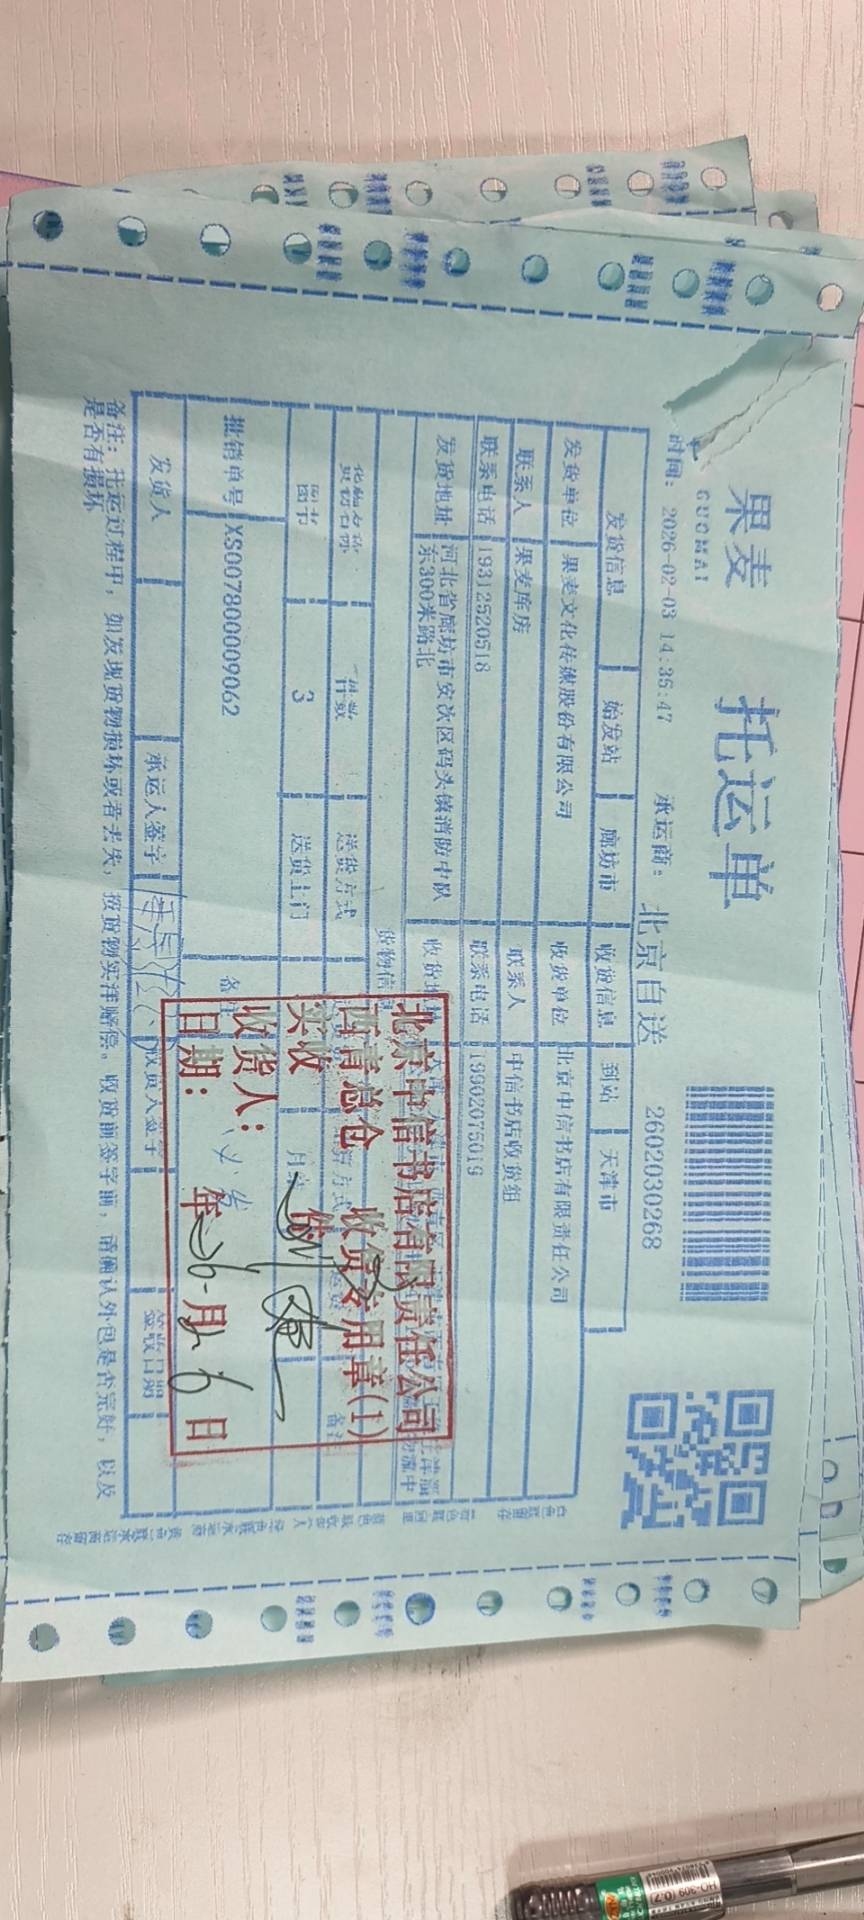 果麦
GUOMAI
托运单
时间: 2026-02-03 14:35:47 承运商: 北京自送 2602030268
发货信息 始发站 廊坊市 收货信息 到站 天津市
发货单位 果麦文化传媒股份有限公司 收货单位 北京中信书店有限责任公司
联系人 果麦库房 联系人 中信书店收货组
联系电话 19312520518 联系电话 19902075019
发货地址 河北省廊坊市安次区码头镇消防中队
东300米路北
货物信息
货物名称 件数 送货方式
图书 3 送货上门
批销单号 XS00780009062
发货人 承运人签字 收货人签字 签收日期
备注: 托运过程中, 如发现货物损坏或者丢失, 按货物实洋赔偿。收货前签字前, 请确认外包是否完好, 以及
是否有损坏
北京中信书店有限责任公司
西青总仓 收货专用章(1)
实收 件
收货人:
日期: 年 月 日